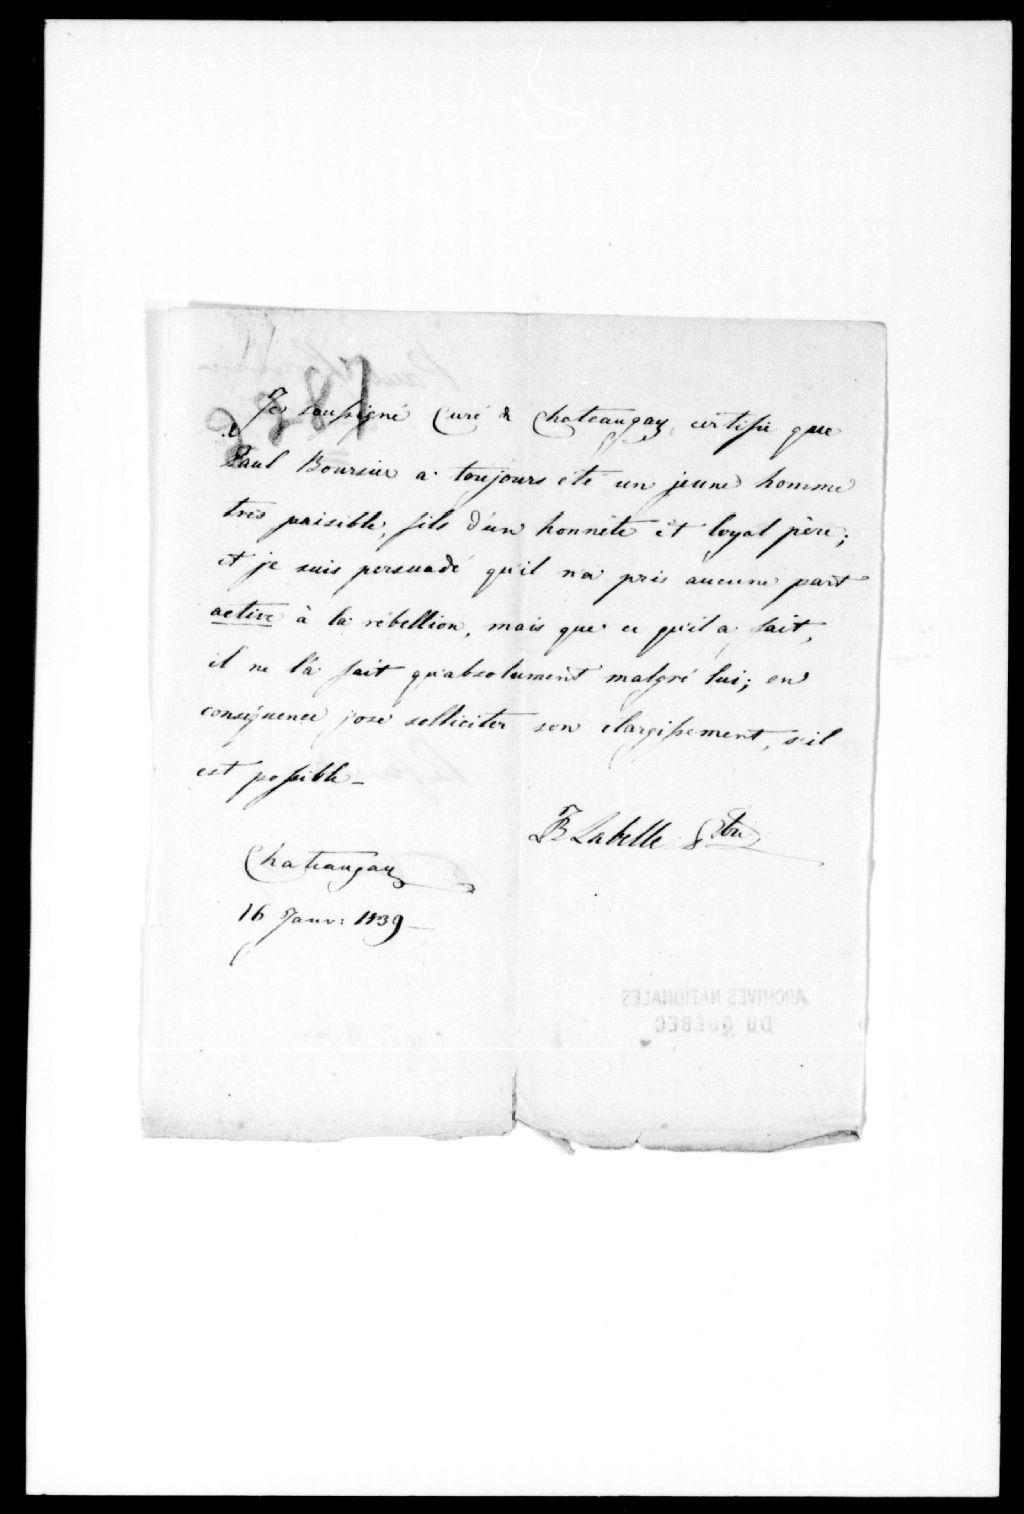 Je soussigné Curé de Chateaugay, certifie que
Paul Boursier a toujours été un jeune homme
très paisible, fils d'un honnête et loyal père;
et je suis persuadé qu'il n'a pris aucune part
active à la rébellion, mais que ce qu'il a fait,
il ne l'a fait qu'absolument malgré lui; en
conséquence j'ose solliciter son élargissement, s'il
est possible_
JB Labelle Ptre
Chateaugay
16 Janv: 1839_
ARCHIVES NATIONALES
DU QUÉBEC